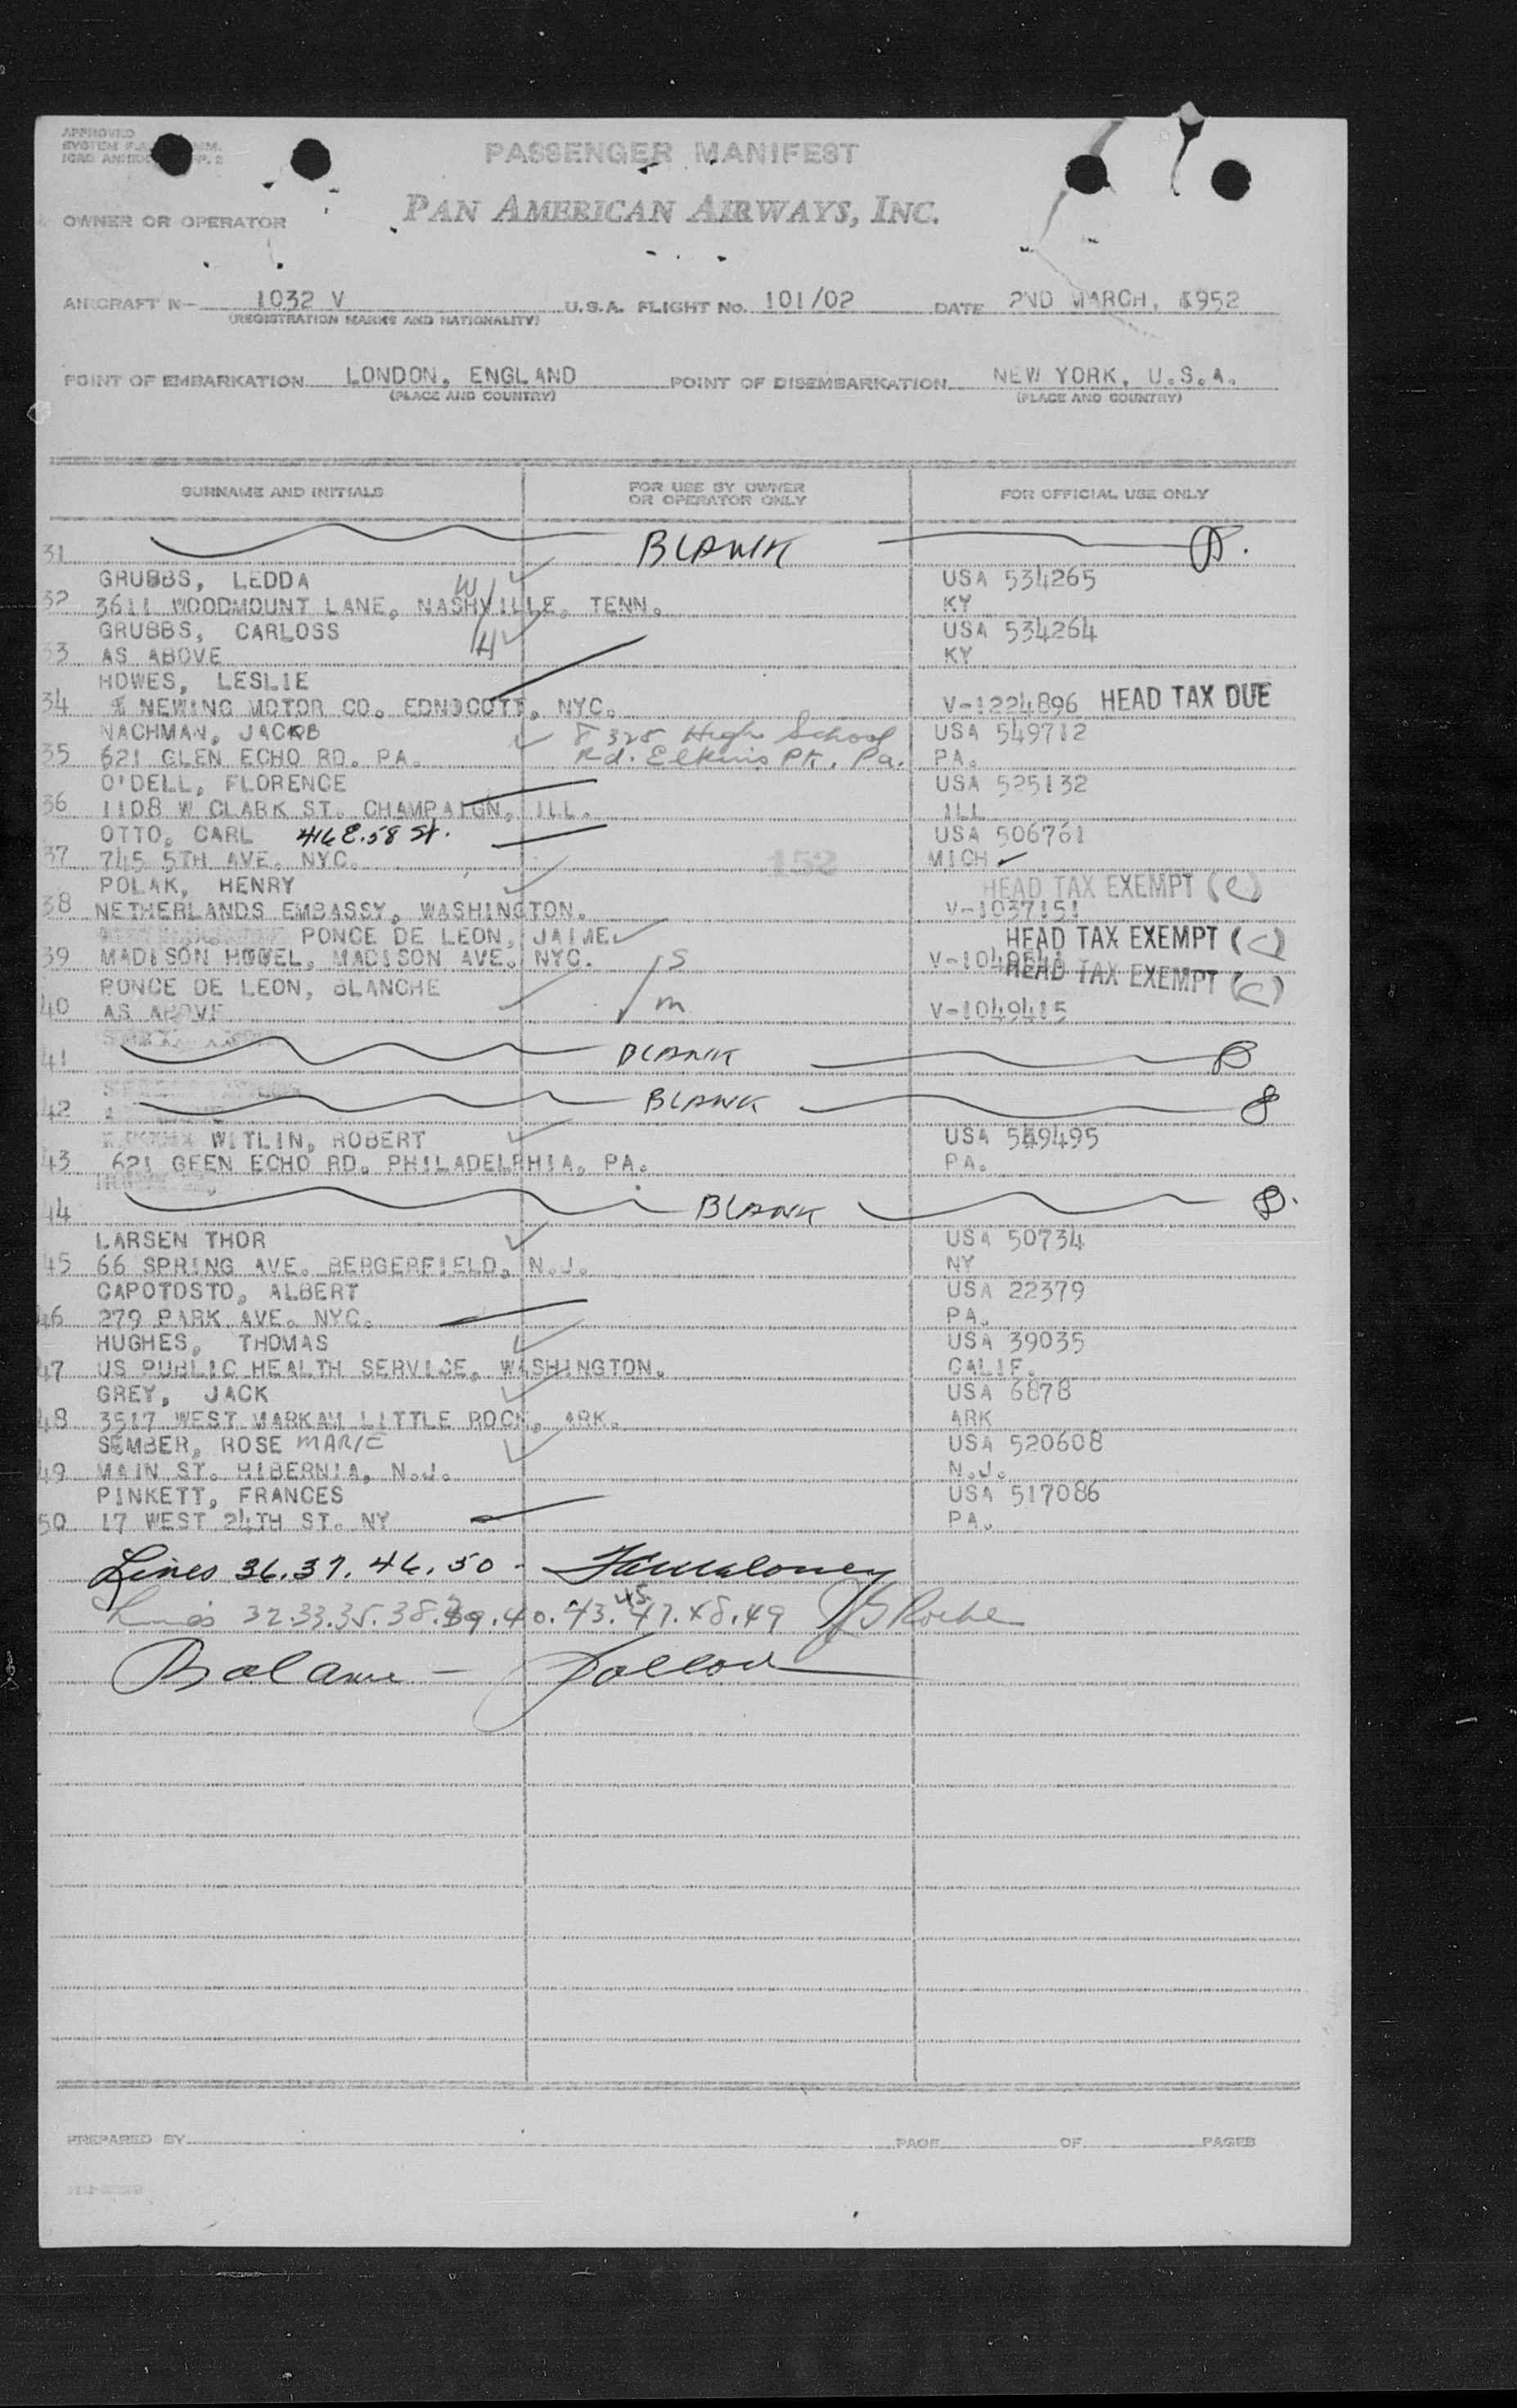 APPROVED
PASSENGER MANIFEST
OWNER OR OPERATOR
PAN AMERICAN AIRWAYS, INC.
AIRCRAFT N- 1032 V U.S.A. FLIGHT NO. 101/02 DATE 2ND MARCH, 1952
(REGISTRATION MARKS AND NATIONALITY)
POINT OF EMBARKATION LONDON, ENGLAND POINT OF DISEMBARKATION NEW YORK, U.S.A.
(PLACE AND COUNTRY) (PLACE AND COUNTRY)
SURNAME AND INITIALS FOR USE BY OWNER OR OPERATOR ONLY FOR OFFICIAL USE ONLY
31 BLANK
GRUBBS, LEDDA W USA 534265
32 3611 WOODMOUNT LANE, NASHVILLE, TENN. KY
GRUBBS, CARLOSS H USA 534264
33 AS ABOVE KY
HOWES, LESLIE
34 % NEWING MOTOR CO. EDNDCOTT, NYC. V-1224896 HEAD TAX DUE
NACHMAN, JACOB 8325 High School USA 549712
35 621 GLEN ECHO RD. PA. Rd. Elkins Pk. Pa. PA.
O'DELL, FLORENCE USA 525132
36 1108 W CLARK ST. CHAMPAIGN, ILL. ILL
OTTO, CARL 416 E. 58 St. USA 506761
37 745 5TH AVE. NYC. 152 MICH
POLAK, HENRY HEAD TAX EXEMPT (C)
38 NETHERLANDS EMBASSY, WASHINGTON. V-1037151
PONCE DE LEON, JAIME HEAD TAX EXEMPT (C)
39 MADISON HOTEL, MADISON AVE. NYC. S
PONCE DE LEON, BLANCHE HEAD TAX EXEMPT (C)
40 AS ABOVE m V-1049415
41 BLANK
42 BLANK
WITLIN, ROBERT USA 549495
43 621 GEEN ECHO RD. PHILADELPHIA, PA. PA.
44 BLANK
LARSEN THOR USA 50734
45 66 SPRING AVE. BERGERFIELD, N.J. NY
CAPOTOSTO, ALBERT USA 22379
46 279 PARK AVE. NYC. PA.
HUGHES, THOMAS USA 39035
47 US PUBLIC HEALTH SERVICE, WASHINGTON. CALIF.
GREY, JACK USA 6878
48 3517 WEST MARKAM LITTLE ROCK, ARK. ARK
SEMBER, ROSE MARIE USA 520608
49 MAIN ST. HIBERNIA, N.J. N.J.
PINKETT, FRANCES USA 517086
50 17 WEST 24TH ST. NY PA.
Lines 36.37.46.50 -
Lines 32.33.35.38.39.40.43.45.47.48.49
PREPARED BY PAGE OF PAGES